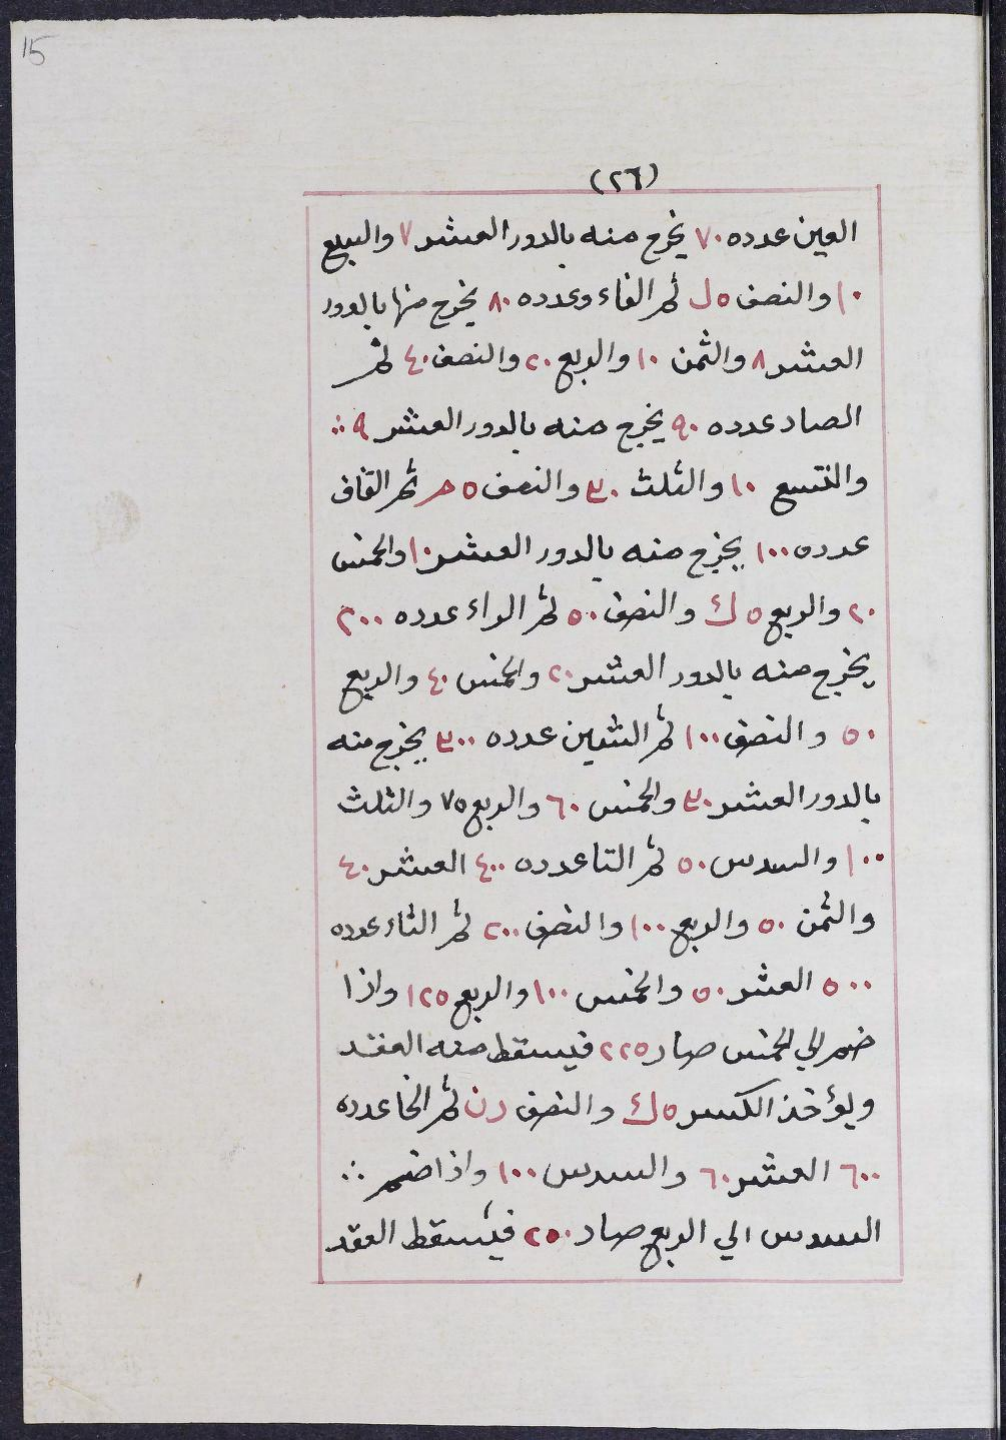 15
(٢٦)
العين عدده ٧٠ يخرج منه بالدور العشر ٧ والسبع
١٠ والنصف ٥ ل ثم الفاء وعدده ٨٠ يخرج منها بالدور
العشر ٨ والثمن ١٠ والربع ٢٠ والنصف ٤٠ ثم
الصاد عدده ٩٠ يخرج منه بالدور العشر ٩ ∴
والتسع ١٠ والثلث ٣٠ والنصف ٥ م ثم القاف
عدده ١٠٠ يخرج منه بالدور العشر ١٠ والخمس
٢٠ والربع ٥ ك والنصف ٥٠ ثم الراء عدده ٢٠٠
يخرج منه بالدور العشر ٢٠ والخمس ٤٠ والربع
٥٠ والنصف ١٠٠ ثم الشين عدده ٣٠٠ يخرج منه
بالدور العشر ٣٠ والخمس ٦٠ والربع ٧٥ والثلث
١٠٠ والسدس ٥٠ ثم التا عدده ٤٠٠ العشر ٤٠
والثمن ٥٠ والربع ١٠٠ والنصف ٢٠٠ ثم الثاء عدده
٥٠٠ العشر ٥٠ والخمس ١٠٠ والربع ١٢٥ واذا
ضم الي الخمس صار ٢٢٥ فيسقط منه العقد
ويؤخذ الكسر ٥ ك والنصف رن ثم الخا عدده
٦٠٠ العشر ٦٠ والسدس ١٠٠ واذا ضم ∴
السدس الي الربع صار ٢٥٠ فيسقط العقد